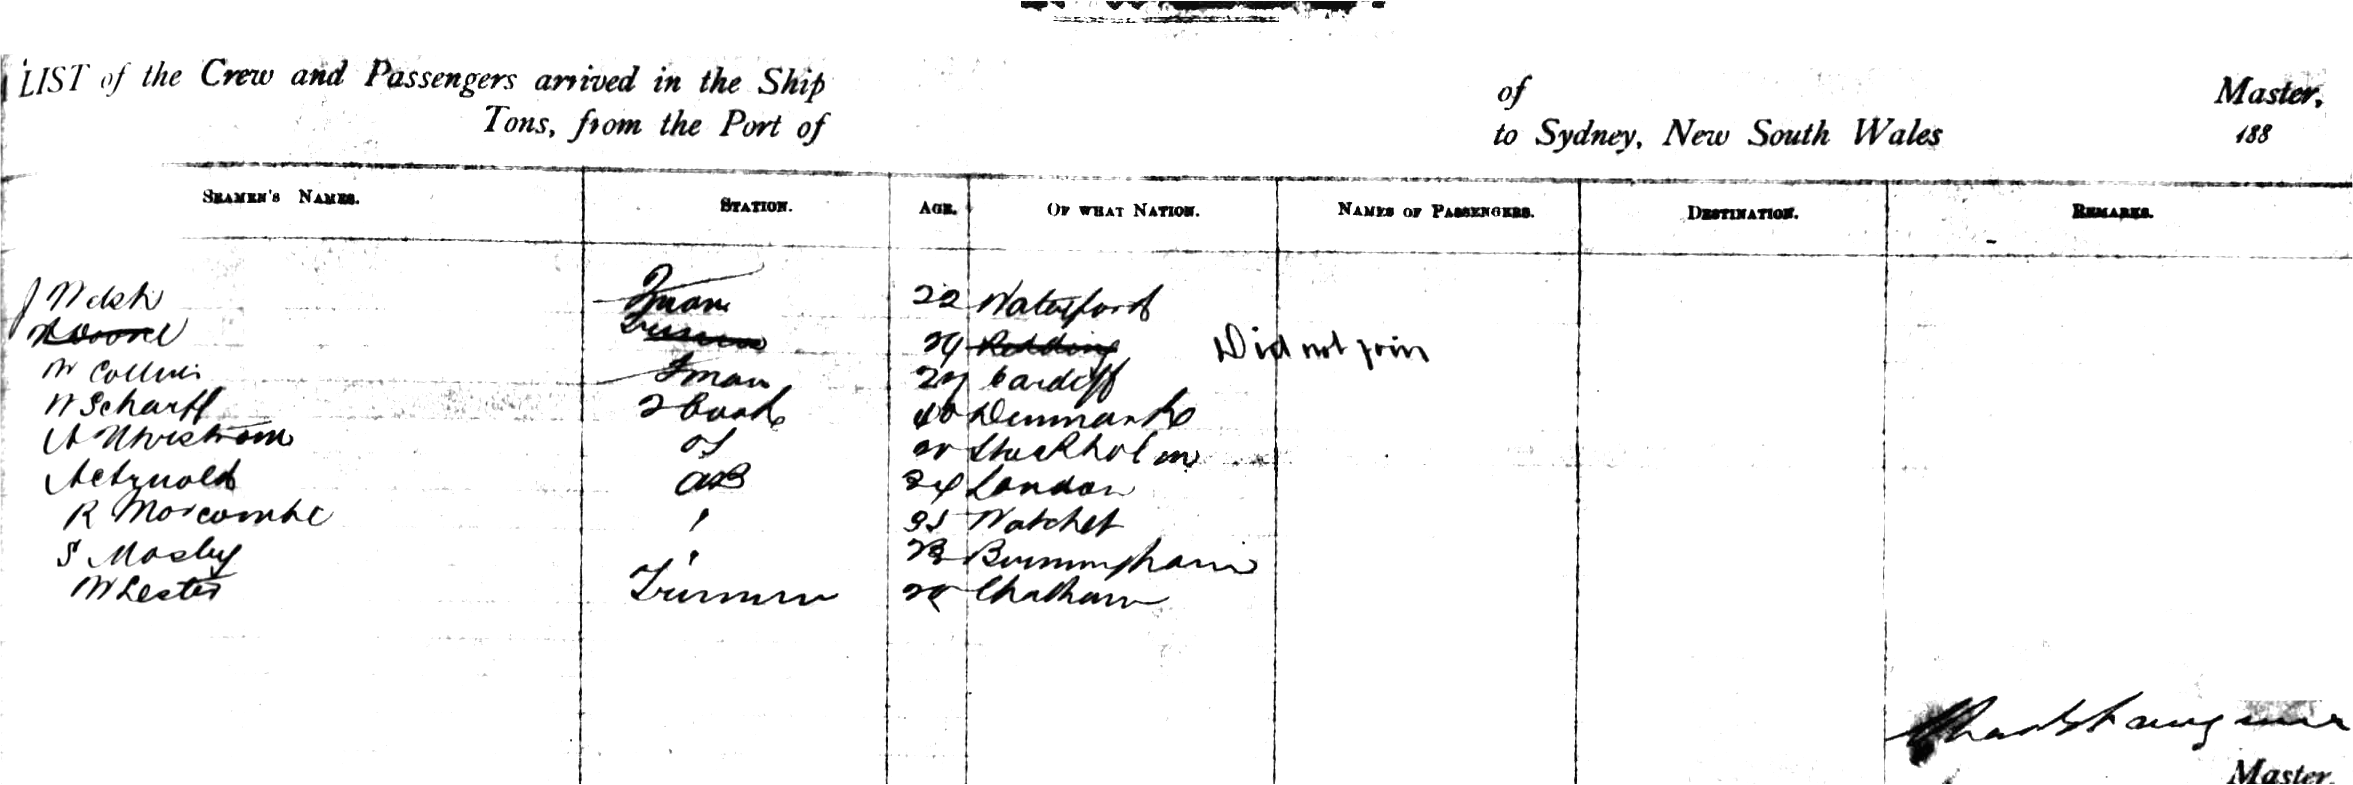 LIST of the Crew and Passengers arrived in the Ship of Master,
Tons, from the Port of to Sydney, New South Wales 188
SEAMEN'S NAMES. STATION. AGE. OF WHAT NATION. NAMES OF PASSENGERS. DESTINATION. REMARKS.
J Welsh Fman 22 Waterford
Trimmer 24 Redding Did not join
W Collins Fman 27 Cardiff
W Scharff 2 Cook 40 Denmark
A OS 20 Stockholm
A C Arnold AB 24 London
R Morcombe " 35 Watchet
S Mosley " 23 Birmingham
W Lester Trimmer 20 Chatham
Master.